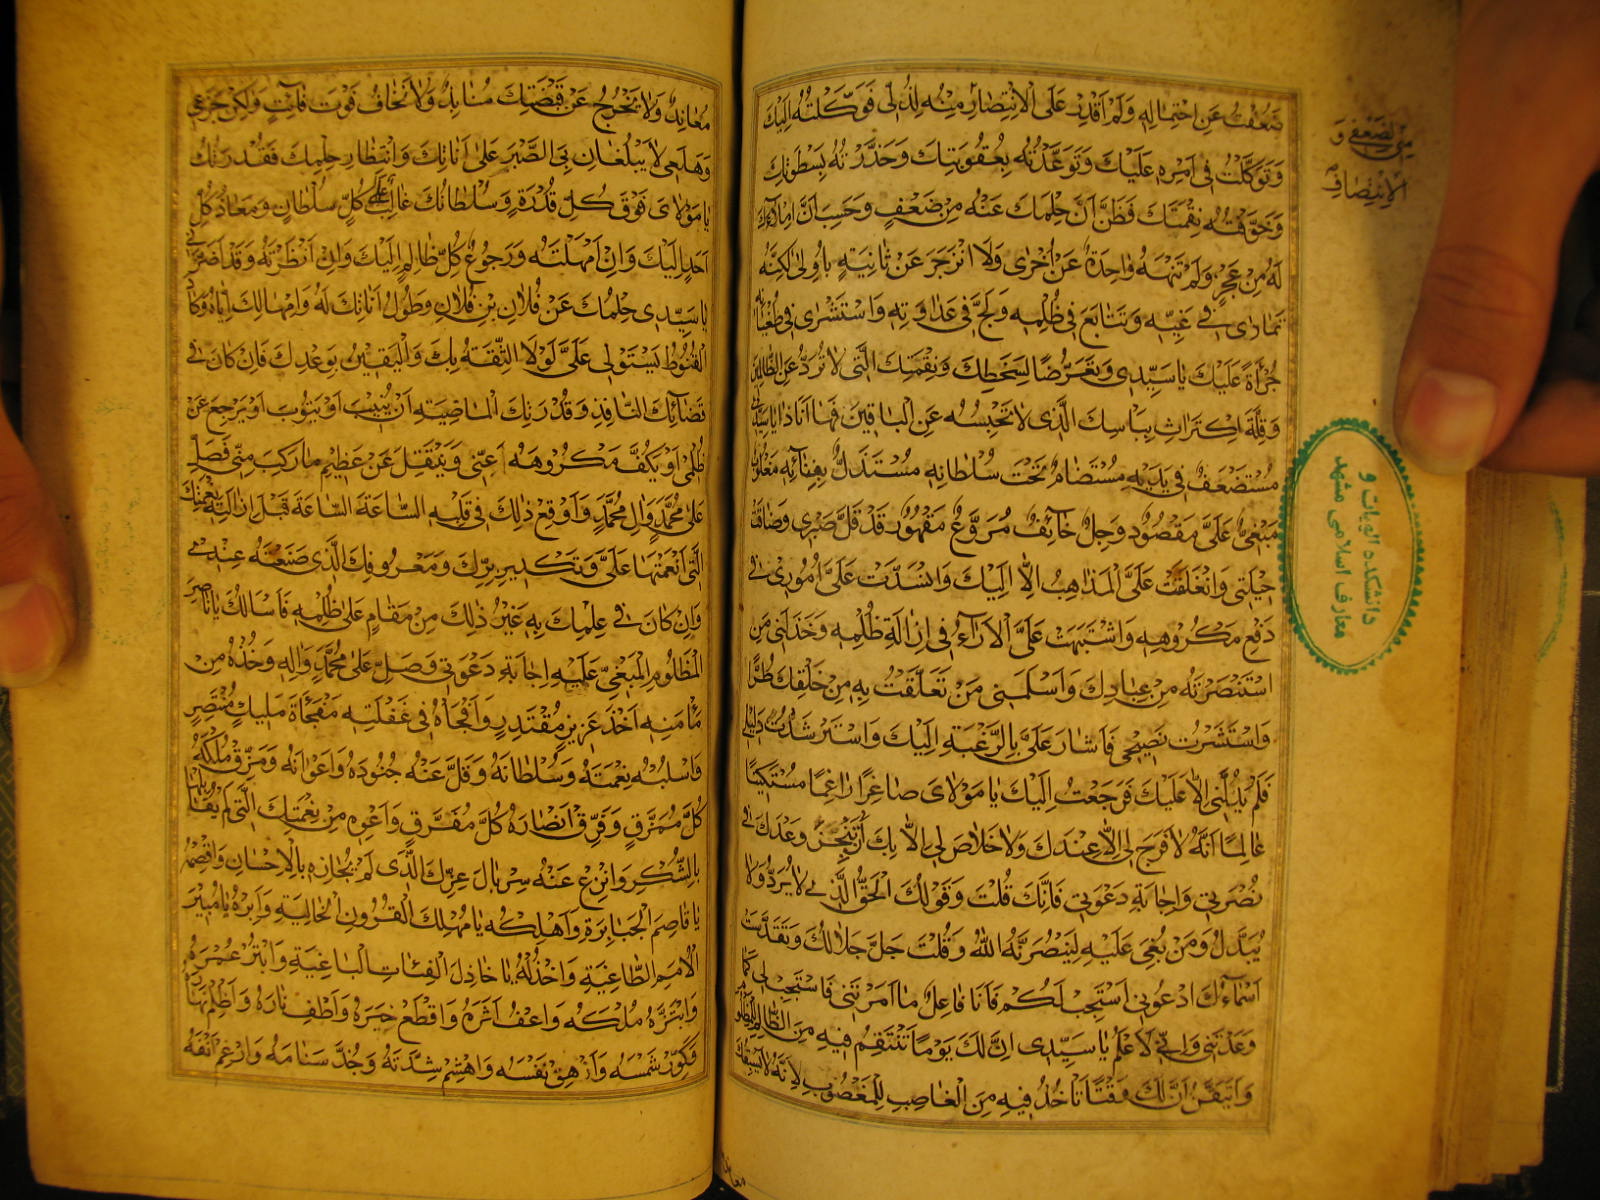 ضَعُفْتُ عَنِ احْتِمالِهِ وَلَمْ اَقْدِرْ عَلَى الْاِنْتِصَارِ مِنْهُ لِذُلّى فَوَكَّلْتُهُ اِلَيْكَ
وَتَوَكَّلْتُ فِى اَمْرِهِ عَلَيْكَ وَتَوَعَّدْتُهُ بِعُقُوبَتِكَ وَحَذَّرْتُهُ بِسَطْوَتِكَ
وَخَوَّفْتُهُ نِقْمَتَكَ فَظَنَّ اَنَّ حِلْمَكَ عَنْهُ مِنْ ضَعْفٍ وَحَسِبَ اَنَّ اِمْلآءَكَ
لَهُ مِنْ عَجْزٍ وَلَمْ تَنْهَهُ وٰاحِدَةٌ عَنْ اُخْرٰى وَلَا انْزَجَرَ عَنْ ثٰانِيَةٍ بِاُولىٰ لكِنَّهُ
تَمٰادىٰ فى غَيِّهِ وَتَتٰابَعَ فى ظُلْمِهِ وَلَجَّ فى عَدٰاوَتِهِ وَاسْتَشْرٰى فى طُغْيٰانِهِ
جُرْأَةً عَلَيْكَ يٰا سَيِّدى وَتَعَرُّضًا لِسَخَطِكَ وَنِقْمَتِكَ الَّتى لٰا تُرَدُّ عَنِ الظّٰالِمينَ
وَقِلَّةَ اكْتِرٰاثٍ بِبَأْسِكَ الَّذى لٰا تَحْبِسُهُ عَنِ الْبٰاقينَ فَهٰا اَنَا ذٰا يٰا سَيِّدى
مُسْتَضْعَفٌ فى يَدَيْهِ مُسْتَضٰامٌ تَحْتَ سُلْطٰانِهِ مُسْتَذَلٌّ بِفِنٰآئِهِ مَغْلُوبٌ
مَبْغِىٌّ عَلَىَّ مَقْصُودٌ وَجِلٌ خٰآئِفٌ مُرَوَّعٌ مَقْهُورٌ قَدْ قَلَّ صَبْرى وَضٰاقَتْ
حيلَتى وَانْغَلَقَتْ عَلَىَّ الْمَذٰاهِبُ اِلّٰا اِلَيْكَ وَانْسَدَّتْ عَلَىَّ اُمُورى فى
دَفْعِ مَكْرُوهِهِ وَاشْتَبَهَتْ عَلَىَّ الْاَرٰآءُ فى اِزٰالَةِ ظُلْمِهِ وَخَذَلَنى مَنِ
اسْتَنْصَرْتُهُ مِنْ عِبٰادِكَ وَاَسْلَمَنى مَنْ تَعَلَّقْتُ بِهِ مِنْ خَلْقِكَ طُرًّا
وَاسْتَشَرْتُ نَصيحى فَاَشٰارَ عَلَىَّ بِالرَّغْبَةِ اِلَيْكَ وَاسْتَرْشَدْتُ دَليلى
فَلَمْ يَدُلَّنى اِلّٰا عَلَيْكَ فَرَجَعْتُ اِلَيْكَ يٰا مَوْلٰاىَ صٰاغِرًا رٰاغِمًا مُسْتَكينًا
عٰالِمًا اَنَّهُ لٰا فَرَجَ لى اِلّٰا عِنْدَكَ وَلٰا خَلٰاصَ لى اِلّٰا بِكَ اَنْتَجِزُ وَعْدَكَ فى
نُصْرَتى وَاِجٰابَةِ دَعْوَتى فَاِنَّكَ قُلْتَ وَقَوْلُكَ الْحَقُّ الَّذى لٰا يُرَدُّ وَلٰا
يُبَدَّلُ وَمَنْ بُغِىَ عَلَيْهِ لَيَنْصُرَنَّهُ اللّٰهُ وَقُلْتَ جَلَّ جَلٰالُكَ وَتَقَدَّسَتْ
اَسْمٰآءُكَ ادْعُونى اَسْتَجِبْ لَكُمْ فَاَنَا فٰاعِلٌ مٰا اَمَرْتَنى فَاسْتَجِبْ لى كَمٰا
وَعَدْتَنى وَاِنّى لَاَعْلَمُ يٰا سَيِّدى اِنَّ لَكَ يَوْمًا تَنْتَقِمُ فيهِ مِنَ الظّٰالِمِ لِلْمَظْلُومِ
وَاَتَيَقَّنُ اَنَّ لَكَ وَقْتًا تَأْخُذُ فيهِ مِنَ الْغٰاصِبِ لِلْمَغْصُوبِ لِاَنَّهُ لٰا يَسْبِقُكَ
مِنّى لِضَعْفى وَ
الْاِنْتِصٰافِ
دانشكده الهيات و
معارف اسلامى مشهد
مُعٰانِدٌ وَلٰا يَخْرُجُ عَنْ قَبْضَتِكَ مُنٰابِذٌ وَلٰا تَخٰافُ فَوْتَ فٰآئِتٍ وَلكِنْ جَزَعى
وَهَلَعى لٰا يَبْلُغٰانِ بِىَ الصَّبْرَ عَلىٰ اَنٰاتِكَ وَانْتِظٰارِ حِلْمِكَ فَقُدْرَتُكَ
يٰا مَوْلٰاىَ فَوْقَ كُلِّ قُدْرَةٍ وَسُلْطٰانُكَ غٰالِبٌ عَلىٰ كُلِّ سُلْطٰانٍ وَمَعٰادُ كُلِّ
اَحَدٍ اِلَيْكَ وَاِنْ اَمْهَلْتَهُ وَرُجُوعُ كُلِّ ظٰالِمٍ اِلَيْكَ وَاِنْ اَنْظَرْتَهُ وَقَدْ اَضَرَّنى
يٰا سَيِّدى حِلْمُكَ عَنْ فُلٰانِ بْنِ فُلٰانٍ وَطُولُ اَنٰاتِكَ لَهُ وَاِمْهٰالُكَ اِيّٰاهُ وَكٰادَ
الْقُنُوطُ يَسْتَوْلى عَلَىَّ لَوْلَا الثِّقَةُ بِكَ وَالْيَقينُ بِوَعْدِكَ فَاِنْ كٰانَ فى
قَضٰآئِكَ النّٰافِذِ وَقُدْرَتِكَ الْمٰاضِيَةِ اَنْ يُنيبَ اَوْ يَتُوبَ اَوْ يَرْجِعَ عَنْ
ظُلْمى اَوْ يَكُفَّ مَكْرُوهَهُ عَنّى وَيَنْتَقِلَ عَنْ عَظيمِ مٰا رَكِبَ مِنّى فَصَلِّ
عَلىٰ مُحَمَّدٍ وَاٰلِ مُحَمَّدٍ وَاَوْقِعْ ذٰلِكَ فى قَلْبِهِ السّٰاعَةَ السّٰاعَةَ قَبْلَ اِزٰالَتِهِ نِعْمَتَكَ
الَّتى اَنْعَمْتَ بِهٰا عَلَىَّ وَتَكْديرِ بِرِّكَ وَمَعْرُوفِكَ الَّذى صَنَعْتَهُ عِنْدى
وَاِنْ كٰانَ فى عِلْمِكَ بِهِ غَيْرُ ذٰلِكَ مِنْ مَقٰامٍ عَلىٰ ظُلْمِهِ فَاَسْأَلُكَ يٰا نٰاصِرَ
الْمَظْلُومِ الْمَبْغِىِّ عَلَيْهِ اِجٰابَةَ دَعْوَتى وَصَلِّ عَلىٰ مُحَمَّدٍ وَاٰلِهِ وَخُذْهُ مِنْ
مَأْمَنِهِ اَخْذَ عَزيزٍ مُقْتَدِرٍ وَافْجَأْهُ فى غَفْلَتِهِ مُفٰاجٰاةَ مَليكٍ مُنْتَصِرٍ
وَاسْلُبْهُ نِعْمَتَهُ وَسُلْطٰانَهُ وَفُلَّ عَنْهُ جُنُودَهُ وَاَعْوٰانَهُ وَمَزِّقْ مُلْكَهُ
كُلَّ مُمَزَّقٍ وَفَرِّقْ اَنْصٰارَهُ كُلَّ مُفَرَّقٍ وَاَعْرِهِ مِنْ نِعْمَتِكَ الَّتى لَمْ يُقٰابِلْهٰا
بِالشُّكْرِ وَانْزِعْ عَنْهُ سِرْبٰالَ عِزِّكَ الَّذى لَمْ يُجٰازِهِ بِالْاِحْسٰانِ وَاقْصِمْهُ
يٰا قٰاصِمَ الْجَبٰابِرَةِ وَاَهْلِكْهُ يٰا مُهْلِكَ الْقُرُونِ الْخٰالِيَةِ وَاَبِرْهُ يٰا مُبيرَ
الْاُمَمِ الطّٰاغِيَةِ وَاخْذُلْهُ يٰا خٰاذِلَ الْفِئٰاتِ الْبٰاغِيَةِ وَابْتُرْ عُمْرَهُ
وَابْتَزَّهُ مُلْكَهُ وَاعْفُ اَثَرَهُ وَاقْطَعْ خَبَرَهُ وَاَطْفِ نٰارَهُ وَاَظْلِمْ نَهٰارَهُ
وَكَوِّرْ شَمْسَهُ وَاَزْهِقْ نَفْسَهُ وَاهْشِمْ شِدَّتَهُ وَجُذَّ سَنٰامَهُ وَارْغِمْ اَنْفَهُ